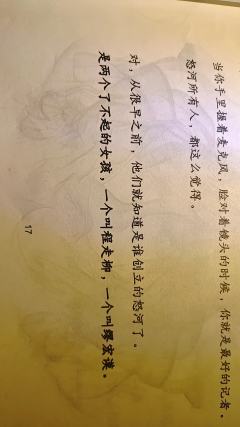 当你手里握着麦克风，脸对着镜头的时候，你就是最好的记者。
怒河所有人，都这么觉得。
对，从很早之前，他们就知道是谁创立的怒河了。
是两个了不起的女孩，一个叫程走柳，一个叫缪宏谟。
17